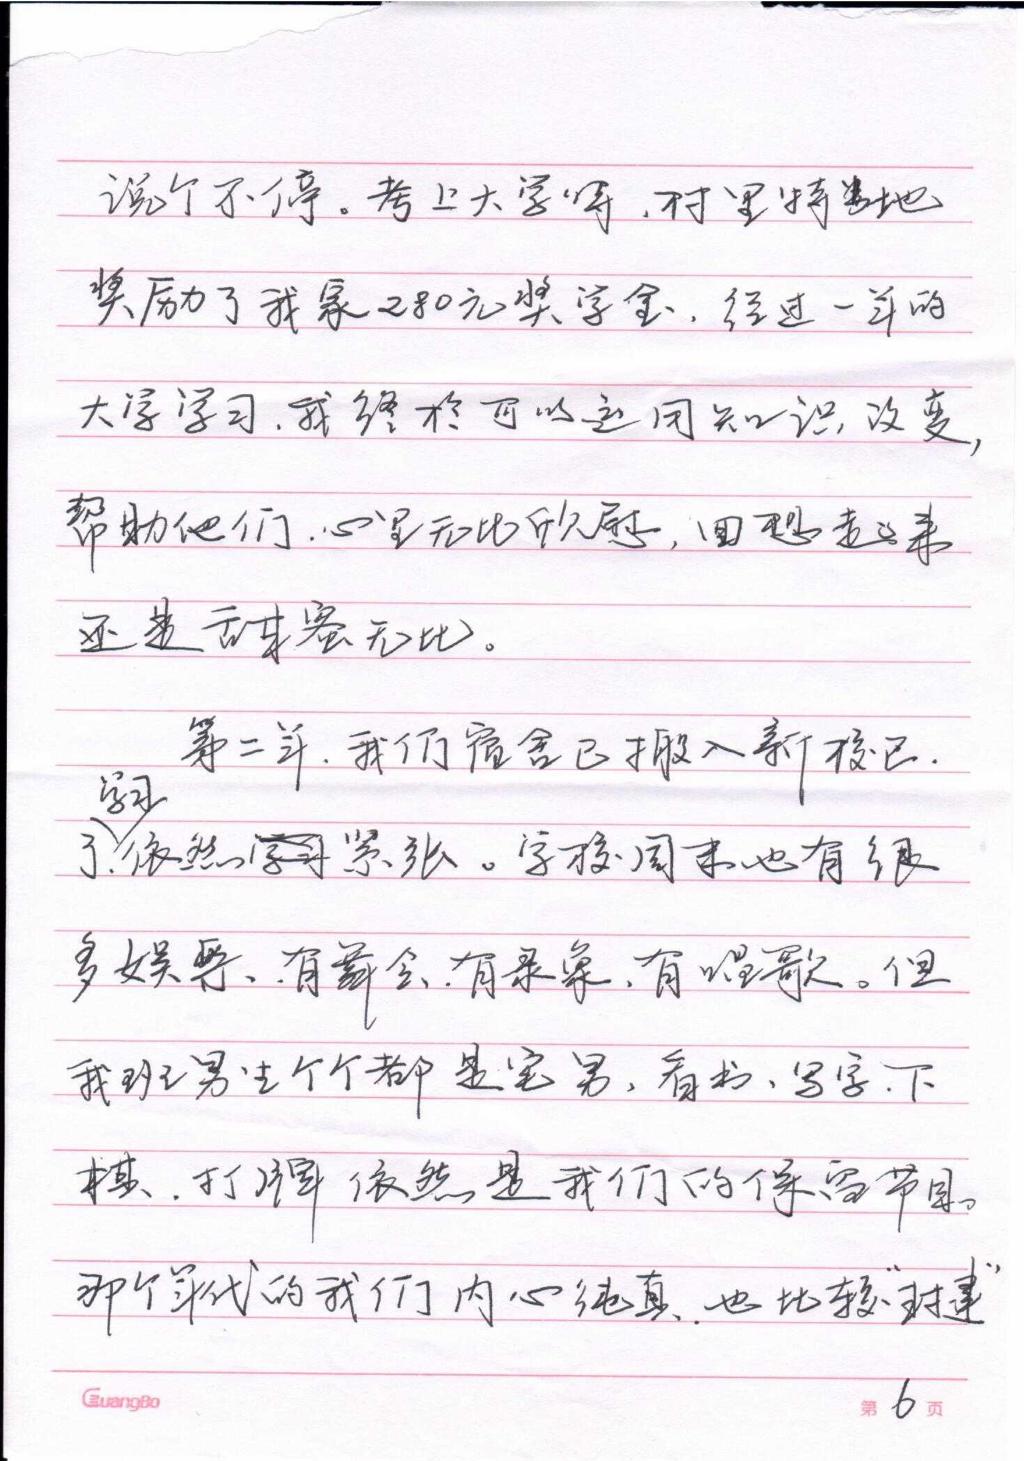 说个不停。考上大学时，村里特地
奖励了我家280元奖学金，经过一年的
大学学习，我终于可以运用知识改变，
帮助他们，心里无比欣慰，回想起来
还是甜蜜无比。
第二年，我们宿舍已搬入新校区，
学习
了，依然学习紧张。学校周末也有很
多娱乐，有舞会，有录象，有唱歌。但
我班男生个个都是宅男，看书，写字，下
棋，打弹依然是我们的保留节目。
那个年代的我们内心纯真，也比较"封建"
GuangBo
第 6 页